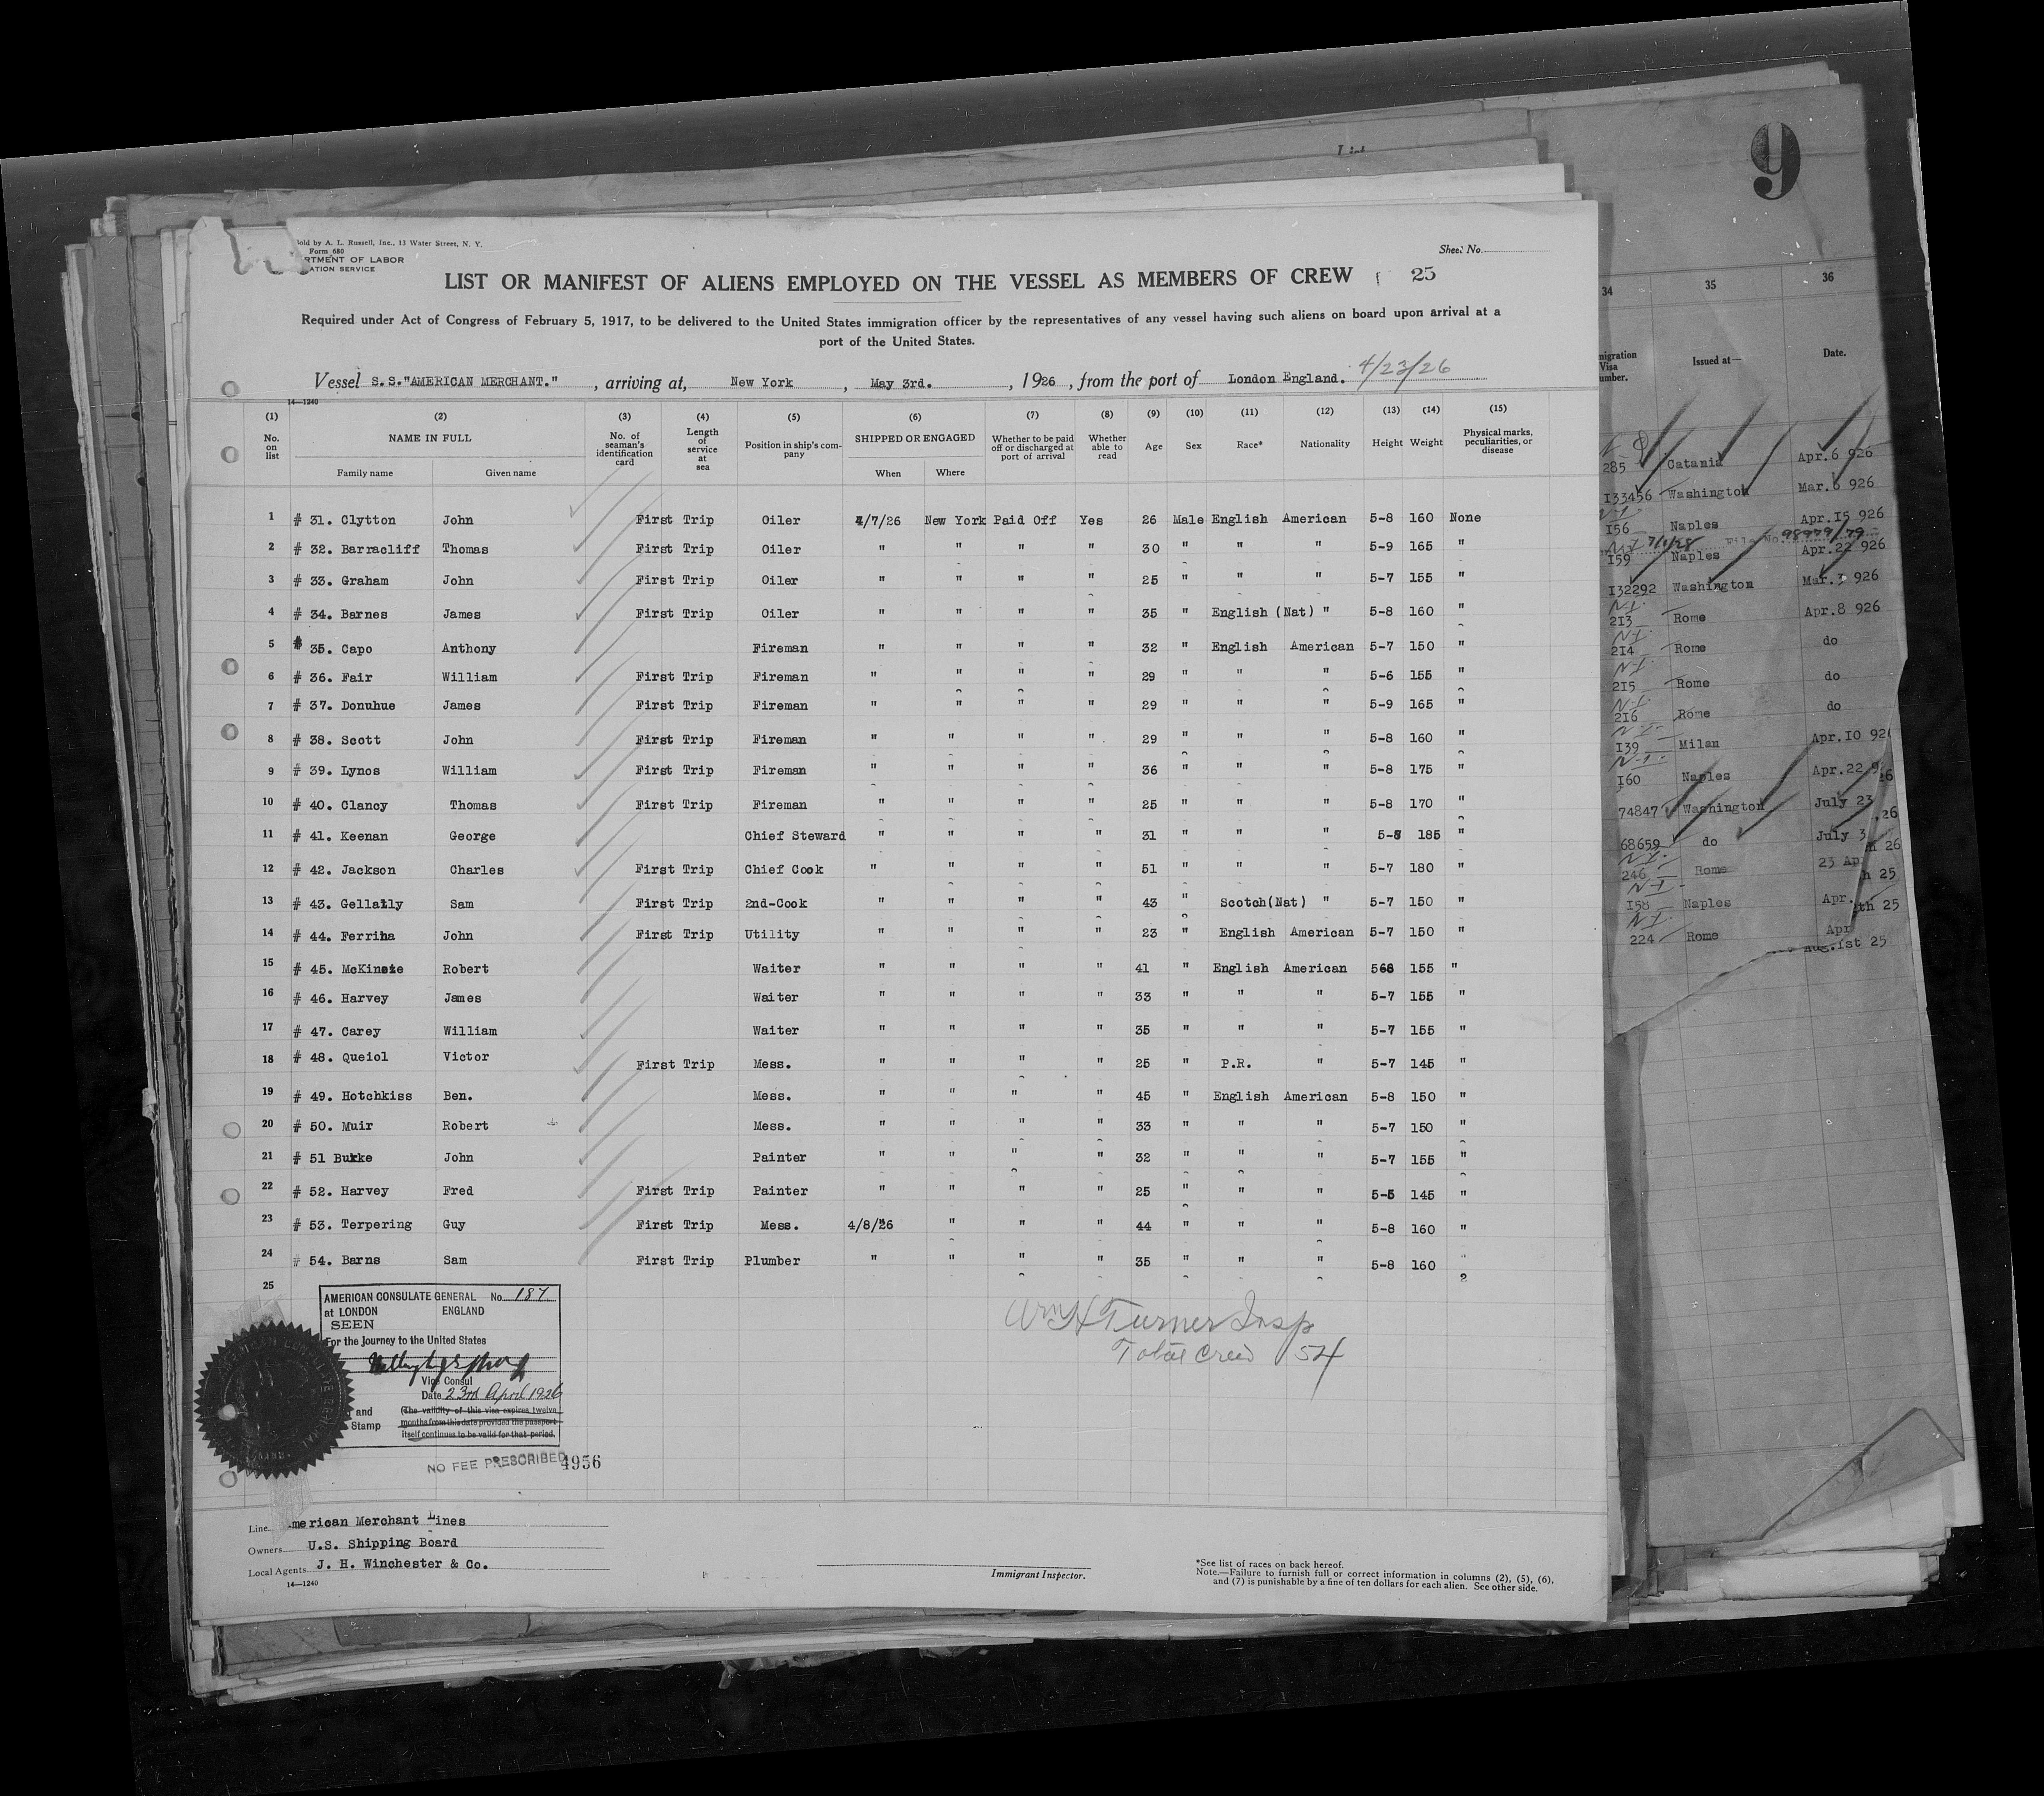 9
List
Sold by A. L. Russell, Inc., 13 Water Street, N. Y.
Form 680
RTMENT OF LABOR
ATION SERVICE
Sheet No.
LIST OR MANIFEST OF ALIENS EMPLOYED ON THE VESSEL AS MEMBERS OF CREW 25
Required under Act of Congress of February 5, 1917, to be delivered to the United States immigration officer by the representatives of any vessel having such aliens on board upon arrival at a
port of the United States.
Vessel S.S."AMERICAN MERCHANT." , arriving at, New York , May 3rd. , 1926 , from the port of London England. 4/23/26
14—1240
(1) (2) (3) (4) (5) (6) (7) (8) (9) (10) (11) (12) (13) (14) (15)
No. on list NAME IN FULL Family name Given name No. of seaman's identification card Length of service at sea Position in ship's company SHIPPED OR ENGAGED When Where Whether to be paid off or discharged at port of arrival Whether able to read Age Sex Race* Nationality Height Weight Physical marks, peculiarities, or disease
1 # 31. Clytton John First Trip Oiler 4/7/26 New York Paid Off Yes 26 Male English American 5-8 160 None
2 # 32. Barracliff Thomas First Trip Oiler " " " " 30 " " " 5-9 165 "
3 # 33. Graham John First Trip Oiler " " " " 25 " " " 5-7 155 "
4 # 34. Barnes James First Trip Oiler " " " " 35 " English (Nat) " 5-8 160 "
5 # 35. Capo Anthony Fireman " " " " 32 " English American 5-7 150 "
6 # 36. Fair William First Trip Fireman " " " " 29 " " " 5-6 155 "
7 # 37. Donuhue James First Trip Fireman " " " " 29 " " " 5-9 165 "
8 # 38. Scott John First Trip Fireman " " " " 29 " " " 5-8 160 "
9 # 39. Lynos William First Trip Fireman " " " " 36 " " " 5-8 175 "
10 # 40. Clancy Thomas First Trip Fireman " " " " 25 " " " 5-8 170 "
11 # 41. Keenan George Chief Steward " " " " 31 " " " 5-8 185 "
12 # 42. Jackson Charles First Trip Chief Cook " " " " 51 " " " 5-7 180 "
13 # 43. Gellatly Sam First Trip 2nd-Cook " " " " 43 " Scotch(Nat) " 5-7 150 "
14 # 44. Ferrina John First Trip Utility " " " " 23 " English American 5-7 150 "
15 # 45. McKinzie Robert Waiter " " " " 41 " English American 568 155 "
16 # 46. Harvey James Waiter " " " " 33 " " " 5-7 155 "
17 # 47. Carey William Waiter " " " " 35 " " " 5-7 155 "
18 # 48. Queiol Victor First Trip Mess. " " " " 25 " P.R. " 5-7 145 "
19 # 49. Hotchkiss Ben. Mess. " " " " 45 " English American 5-8 150 "
20 # 50. Muir Robert Mess. " " " " 33 " " " 5-7 150 "
21 # 51 Burke John Painter " " " " 32 " " " 5-7 155 "
22 # 52. Harvey Fred First Trip Painter " " " " 25 " " " 5-5 145 "
23 # 53. Terpering Guy First Trip Mess. 4/8/26 " " " 44 " " " 5-8 160 "
24 # 54. Barns Sam First Trip Plumber " " " " 35 " " " 5-8 160 "
25
Wm H Turner Insp
Total Crew 54
AMERICAN CONSULATE GENERAL No. 187
at LONDON ENGLAND
SEEN
For the Journey to the United States
Vice Consul
Date 23rd April 1926
and
Stamp
(The validity of this visa expires twelve
months from this date provided the passport
itself continues to be valid for that period.
NO FEE PRESCRIBED
4956
Line American Merchant Lines
Owners U.S. Shipping Board
Local Agents J. H. Winchester & Co.
14—1240
Immigrant Inspector.
*See list of races on back hereof.
Note.—Failure to furnish full or correct information in columns (2), (5), (6),
and (7) is punishable by a fine of ten dollars for each alien. See other side.
34 35 36
migration Visa umber. Issued at— Date.
285 Catania Apr.6 926
I33456 Washington Mar.6 926
I56 Naples Apr.I5 926
7/1/28 File No. 98979/79
I59 Naples Apr.22 926
I32292 Washington Mar.3 926
2I3 Rome Apr.8 926
2I4 Rome do
2I5 Rome do
2I6 Rome do
I39 Milan Apr.IO 92
I60 Naples Apr.22 9
74847 Washington July 23
68659 do July 3
246 Rome 23 Ap
I58 Naples Apr.
224 Rome Apr
26
,26
26
h 25
th 25
August 25